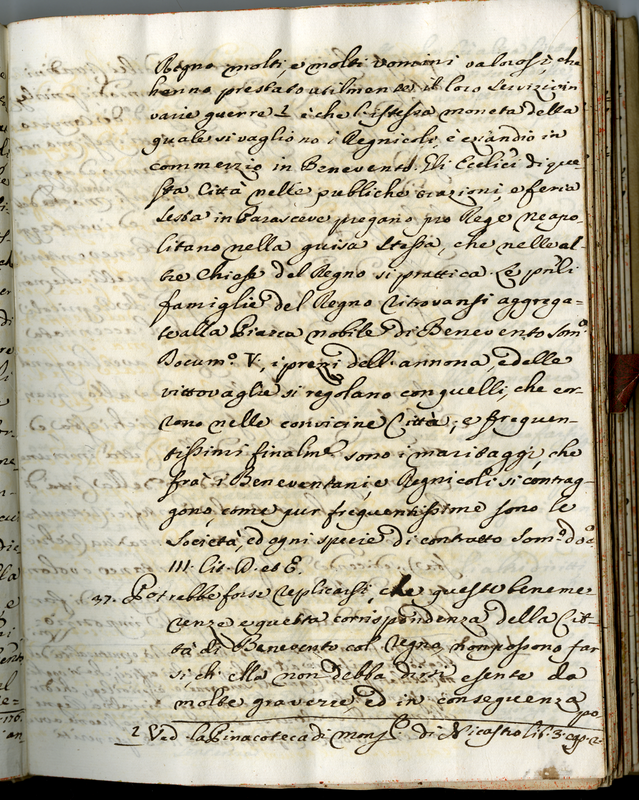 Regno molti, e molti uomini valorosi, che
hanno prestato utilmente il loro servizio in
varie guerre 1 è che l'istessa moneta della
quale si vagliono i Regnicoli, è eziandio in
commerzio in Benevento. Gli Eccl.ci di que-
sta Città nelle publiche orazioni, e feria
sesta in Parasceve pregano pro Rege neapo
litano nella guisa stessa, che nelle al-
tre Chiese del Regno si prattica. Le p̃nli
famiglie del Regno ritrovansi aggrega-
te alla Piazza nobile di Benevento Som.o
Docum.o V., i prezzi dell'annona, e delle
vittovaglie si regolano con quelli, che cor-
rono nelle convicine Città; e frequen-
tissimi finalm.e sono i maritaggi, che
fra' i Beneventani, e Regnicoli si contrag-
gono, come pur frequentissime sono le
Società, ed ogni specie di contratto Som.o do.o
III. Lit. D. et E.
37. Potrebbe forse replicarsi, che queste beneme
renze e questa corrispondenza della Cit-
tà di Benevento col regno, non possono far
sì, ch'ella non debba dirsi esente da
molte gravezze, ed in conseguenza
po
1 Ved. la Pinacoteca di mons.r di Nicastro lib. 3. cap. 2.